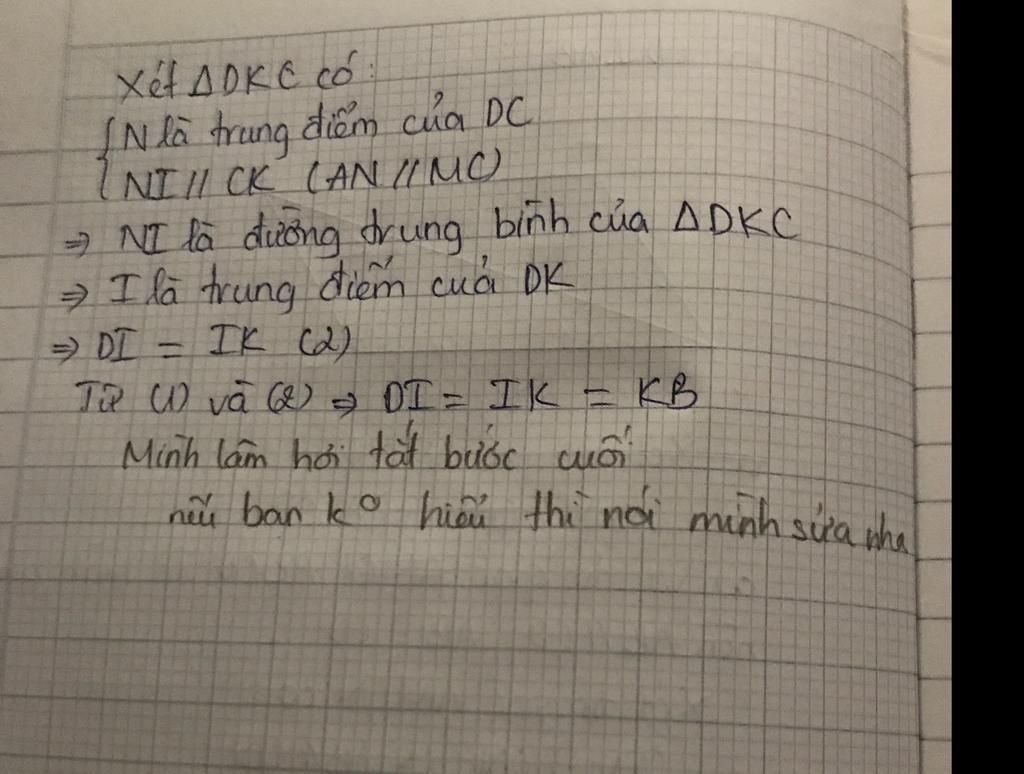 Xét ΔDKC có:
{ N là trung điểm của DC
{ NI // CK (AN // MC)
⇒ NI là đường trung bình của ΔDKC
⇒ I là trung điểm của DK
⇒ DI = IK (2)
Từ (1) và (2) ⇒ DI = IK = KB
Mình làm hơi tắt bước cuối
nếu bạn ko hiểu thì nói mình sửa nha